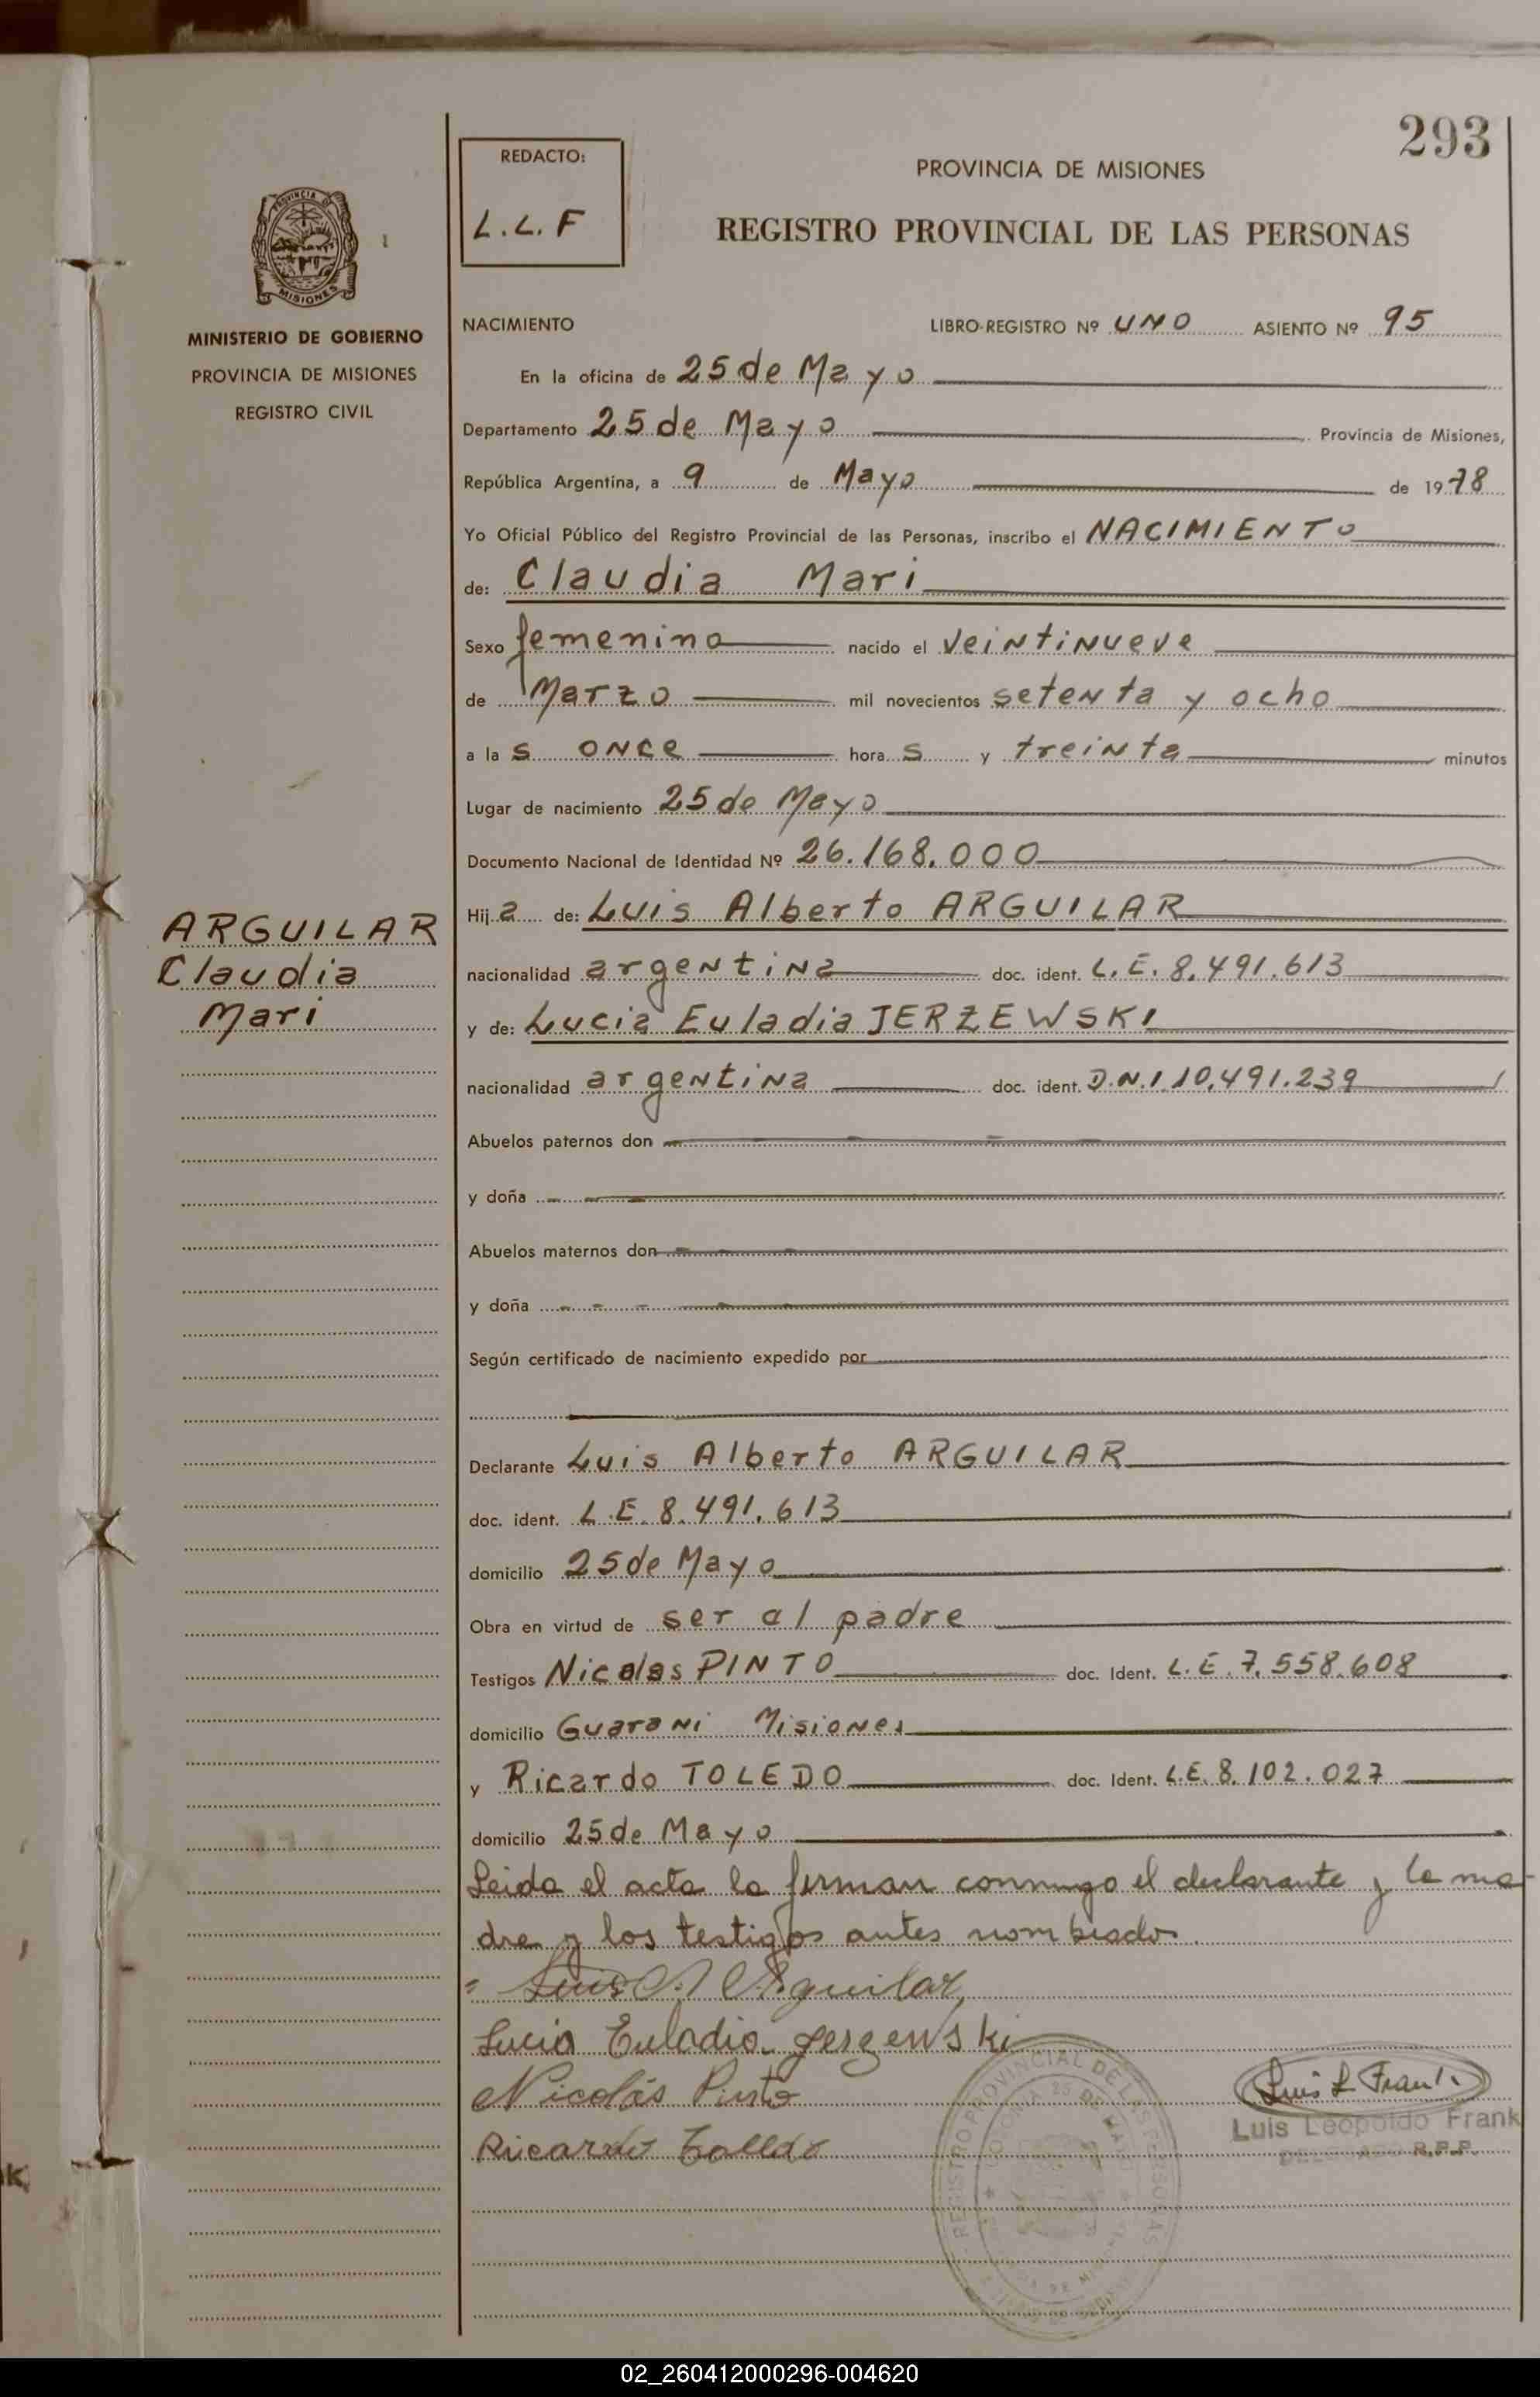 293
REDACTO:
L.L.F
PROVINCIA DE MISIONES
REGISTRO PROVINCIAL DE LAS PERSONAS
PROVINCIA DE
MISIONES
MINISTERIO DE GOBIERNO
PROVINCIA DE MISIONES
REGISTRO CIVIL
NACIMIENTO LIBRO-REGISTRO Nº UNO ASIENTO Nº 95
En la oficina de 25 de Mayo
Departamento 25 de Mayo Provincia de Misiones,
República Argentina, a 9 de Mayo de 1978
Yo Oficial Público del Registro Provincial de las Personas, inscribo el NACIMIENTO
de: Claudia Mari
Sexo femenino nacido el veintinueve
de Marzo mil novecientos setenta y ocho
a la s once hora s y treinta minutos
Lugar de nacimiento 25 de Mayo
Documento Nacional de Identidad Nº 26.168.000
ARGUILAR
Claudia
Mari
Hij a de: Luis Alberto ARGUILAR
nacionalidad argentina doc. ident. L.E. 8.491.613
y de: Lucia Euladia JERZEWSKI
nacionalidad argentina doc. ident. D.N.I 10.491.239
Abuelos paternos don
y doña
Abuelos maternos don
y doña
Según certificado de nacimiento expedido por
Declarante Luis Alberto ARGUILAR
doc. ident. L.E. 8.491.613
domicilio 25 de Mayo
Obra en virtud de ser al padre
Testigos Nicolas PINTO doc. Ident. L.E. 7.558.608
domicilio Guarani Misiones
y Ricardo TOLEDO doc. Ident. L.E. 8.102.027
domicilio 25 de Mayo
Leida el acta la firman conmigo el declarante y la ma
dre y los testigos antes nombrados.
Luis A Arguilar
Lucia Euladia Jerzewski
Nicolás Pinto
Ricardo Tolledo
Luis L Frank
Luis Leopoldo Frank
DELEGADO R.P.P.
REGISTRO PROVINCIAL DE LAS PERSONAS
COLONIA 25 DE MAYO
02_260412000296-004620